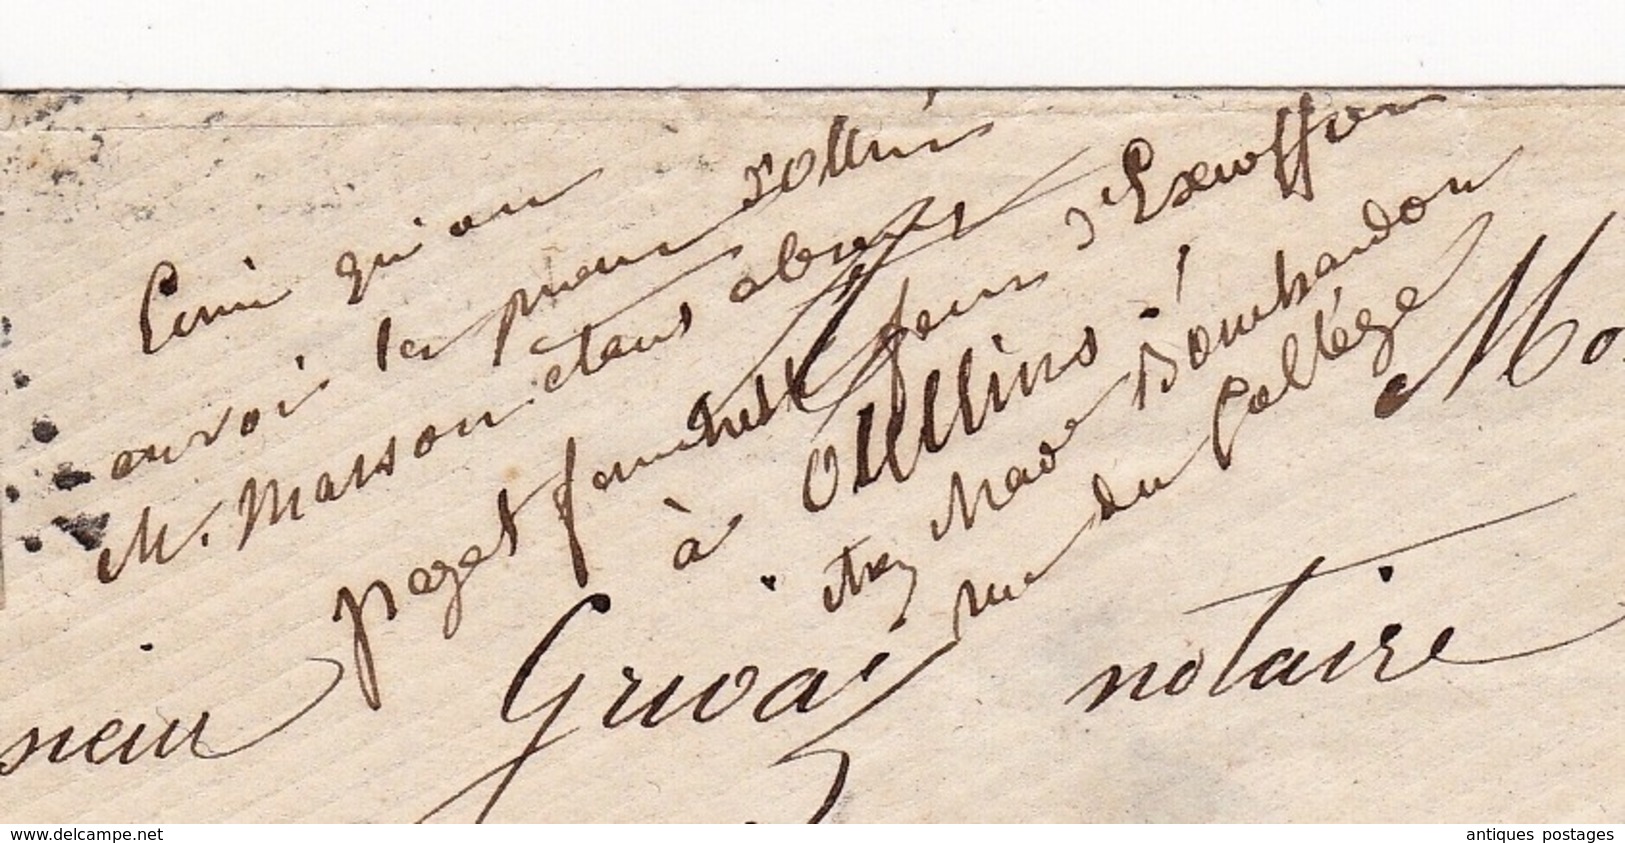 Ecrire qu'on
envoi les pour Sollin
M. Masson étant absent
paget four d'Exioffon
à Oullins.
chez Made Bombardon
rue du Collège
Mo
sieur Grivas notaire
www.delcampe.net
antiques postages